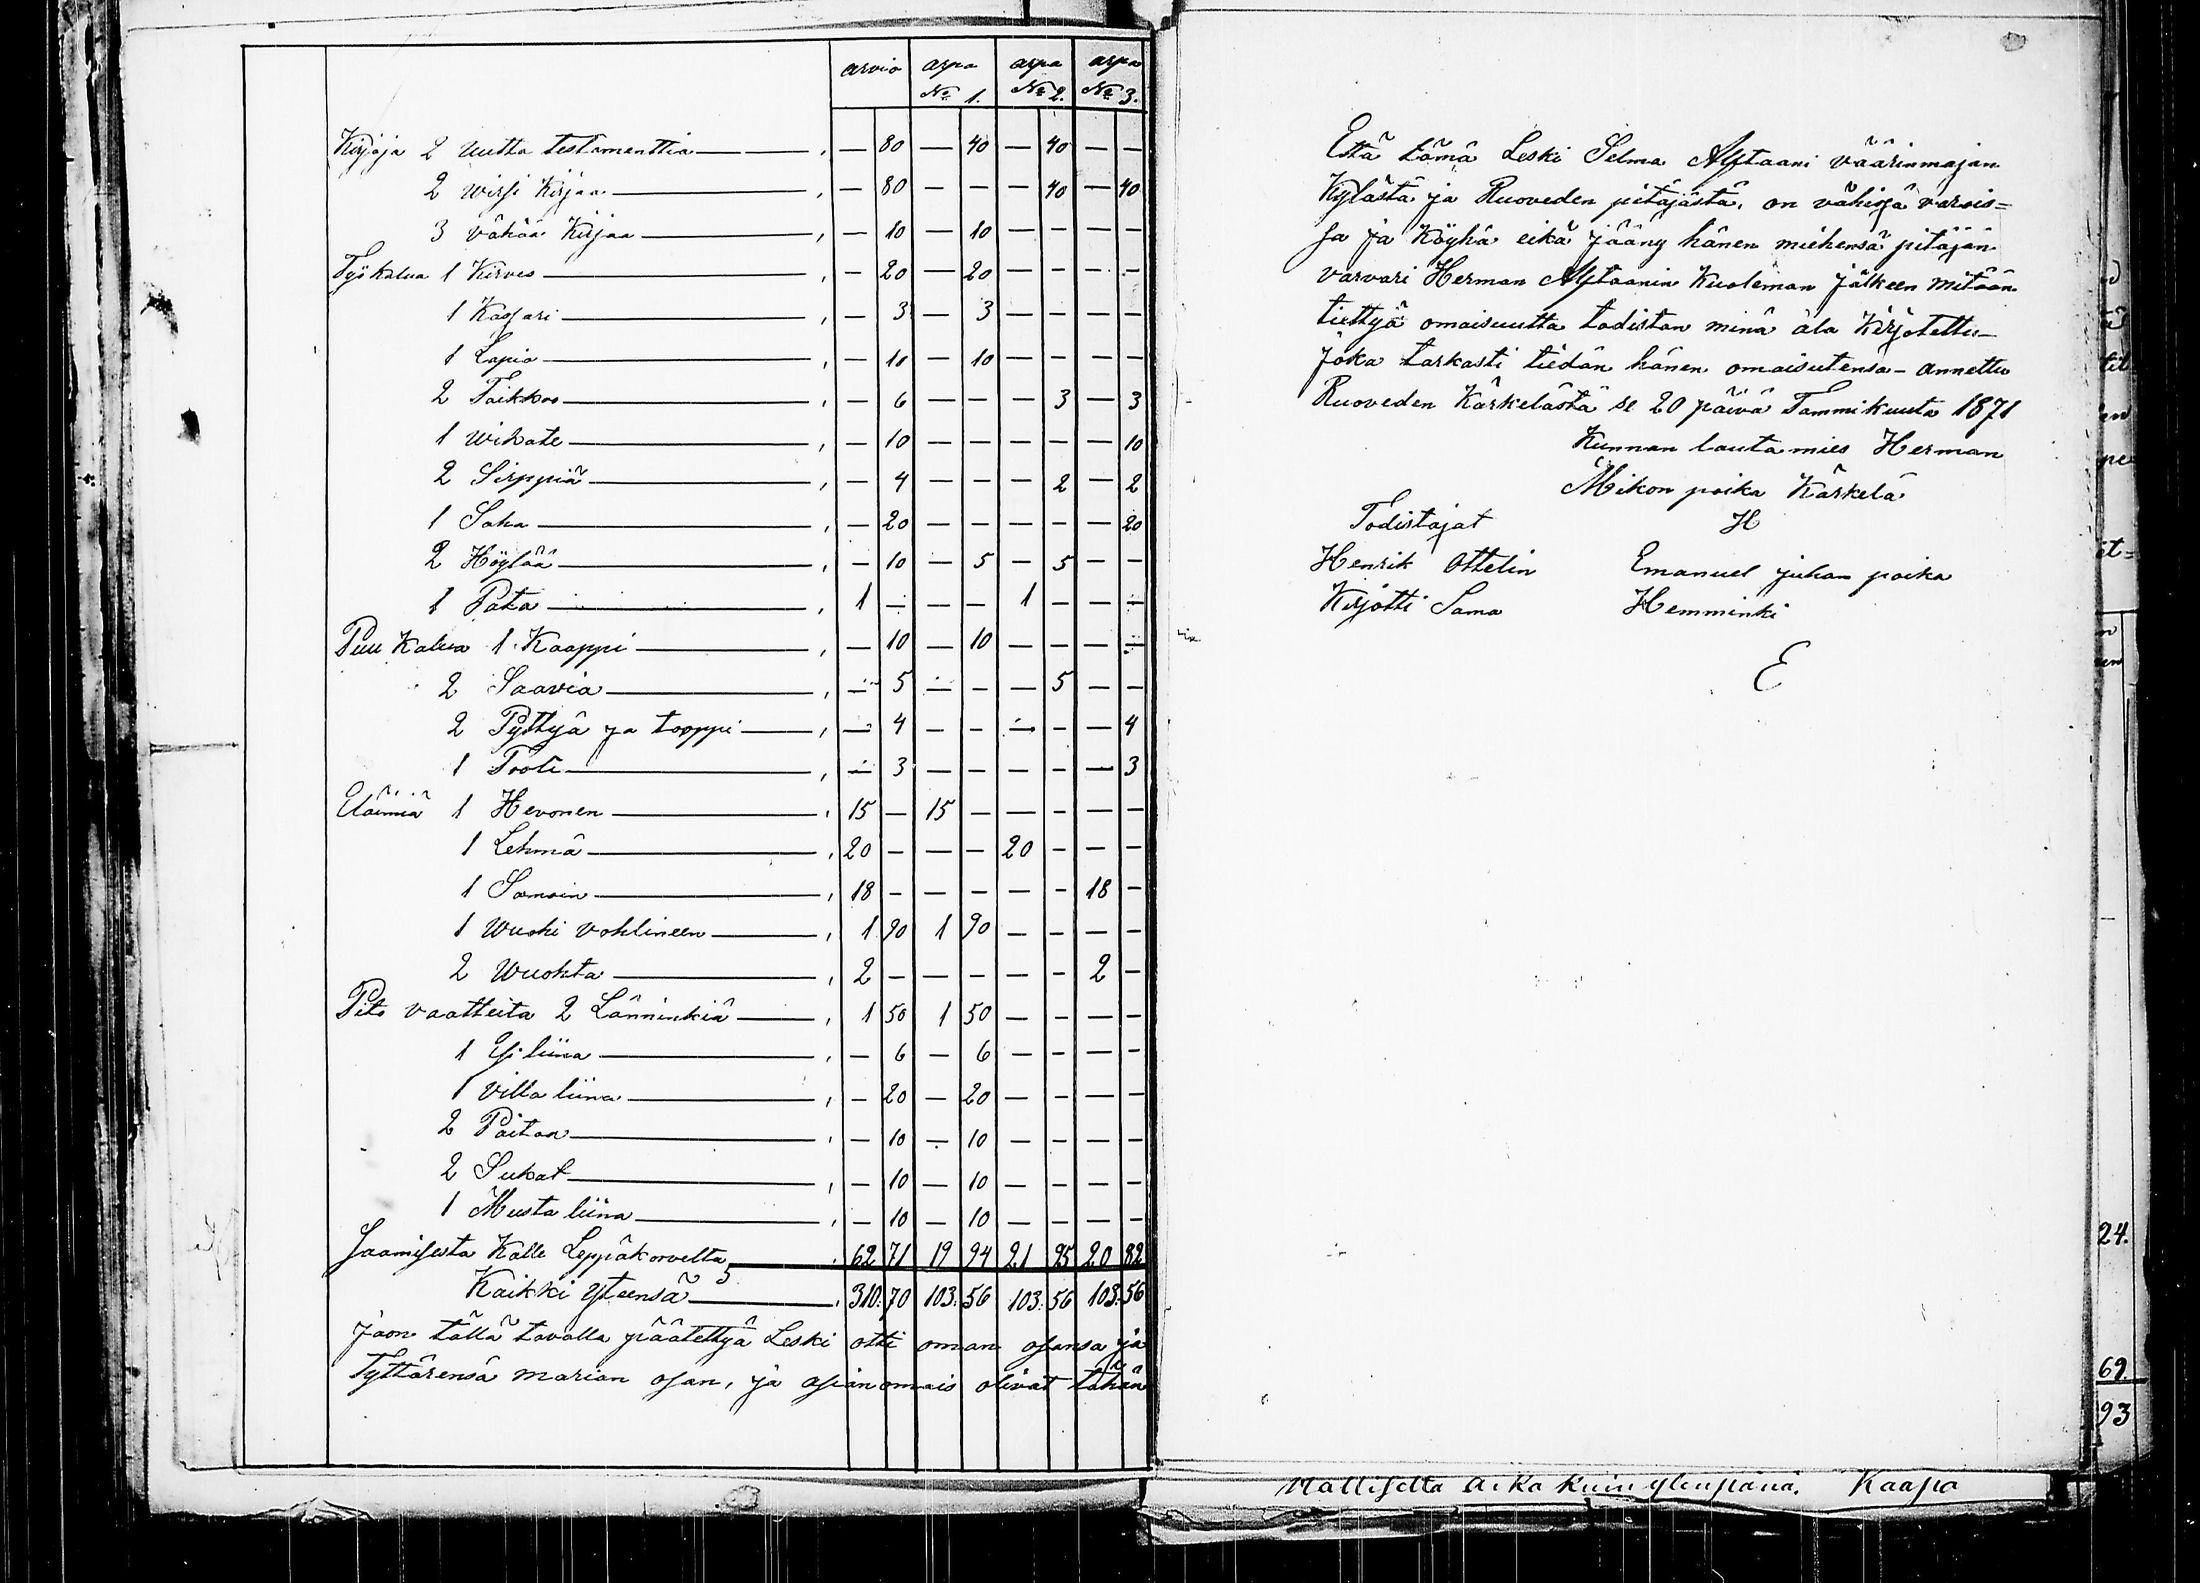 arvio arpa arpa arpa
No 1. No 2. No 3.
Kirjoja 2 Uutta testamenttia — 80 — 40 — 40 — —
2 Wirsi Kirjaa — 80 — — — 40 — 40
3 vähää Kirjaa — 10 — 10 — — — —
Työ kalua 1 Kirves — 20 — 20 — — — —
1 Kassari — 3 — 3 — — — —
1 Lapio — 10 — 10 — — — —
2 Taikkoo — 6 — — — 3 — 3
1 Wikate — 10 — — — — — 10
2 Sirppiä — 4 — — — 2 — 2
1 Saha — 20 — — — — — 20
2 Höylää — 10 — 5 — 5 — —
1 Pata 1 — — — 1 — — —
Puu Kalua 1 Kaappi — 10 — 10 — — — —
2 Saavia — 5 — — — 5 — —
2 Pyttyä ja tooppi — 4 — — — — — 4
1 Tooli — 3 — — — — — 3
Eläimiä 1 Hevonen 15 — 15 — — — — —
1 Lehmä 20 — — — 20 — — —
1 Samoin 18 — — — — — 18 —
1 Wuohi vohlineen 1 90 1 90 — — — —
2 Wuohta 2 — — — — — 2 —
Pito vaatteita 2 Länninkiä 1 50 1 50 — — — —
1 Esi liina — 6 — 6 — — — —
1 Villa liina — 20 — 20 — — — —
2 Paitaa — 10 — 10 — — — —
2 Sukat — 10 — 10 — — — —
1 Musta liina — 10 — 10 — — — —
Saamisesta Kalle Leppäkorvelta 62 71 19 94 21 95 20 82
Kaikki yteensä 310: 70 103: 56 103: 56 103: 56
Jaon tällä tavalla päätettyä Leski otti oman osansa ja
Tyttärensä marian osan, ja asianomais olivat tähän
Että tämä Leski Selma Alftaani väärinmajan
Kylästä ja Ruoveden pitäjästä, on vähissä varois=
sa ja Köyhä eikä jääny hänen miehensä pitäjän
varvari Herman Alftaanin Kuoleman jälkeen mitään
tiettyä omaisuutta todistan minä ala Kirjotettu
joka tarkasti tiedän hänen omaisutensa - annettu
Ruoveden Kärkelästä se 20 päivä Tammikuuta 1871
Kunnan lauta mies Herman
Mikon poika Kärkelä
Todistajat H
Henrik Ottelin Emanuel juhan poika
Kirjotti Sama Hemminki
E
24.
69.
93
Kaapo